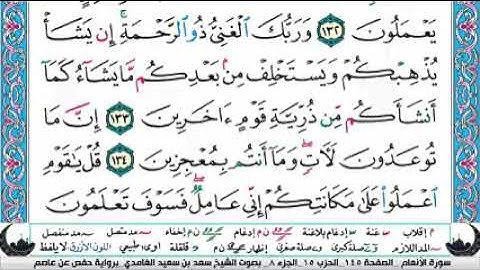 يَعْمَلُونَ ١٣٢ وَرَبُّكَ الْغَنِيُّ ذُو الرَّحْمَةِ ۚ إِن يَشَأْ
يُذْهِبْكُمْ وَيَسْتَخْلِفْ مِن بَعْدِكُم مَّا يَشَاءُ كَمَا
أَنشَأَكُم مِّن ذُرِّيَّةِ قَوْمٍ ءَاخَرِينَ ١٣٣ إِنَّ مَا
تُوعَدُونَ لَآتٍ ۖ وَمَا أَنتُم بِمُعْجِزِينَ ١٣٤ قُلْ يَٰقَوْمِ
اعْمَلُوا عَلَىٰ مَكَانَتِكُمْ إِنِّي عَامِلٌ ۖ فَسَوْفَ تَعْلَمُونَ
م إقلاب س غنة س إدغام بلاغنة ن م إدغام ن م إخفاء مد متصل مد منفصل
مد اللازم صلة كبرى صلة صغرى إظهار ن م قلقلة أوى طبيعي اللون الأزرق لا يلفظ
سورة الأنعام - الصفحة ١٤٥ - الحزب ١٥ - الجزء ٨ - بصوت الشيخ سعد بن سعيد الغامدي - برواية حفص عن عاصم